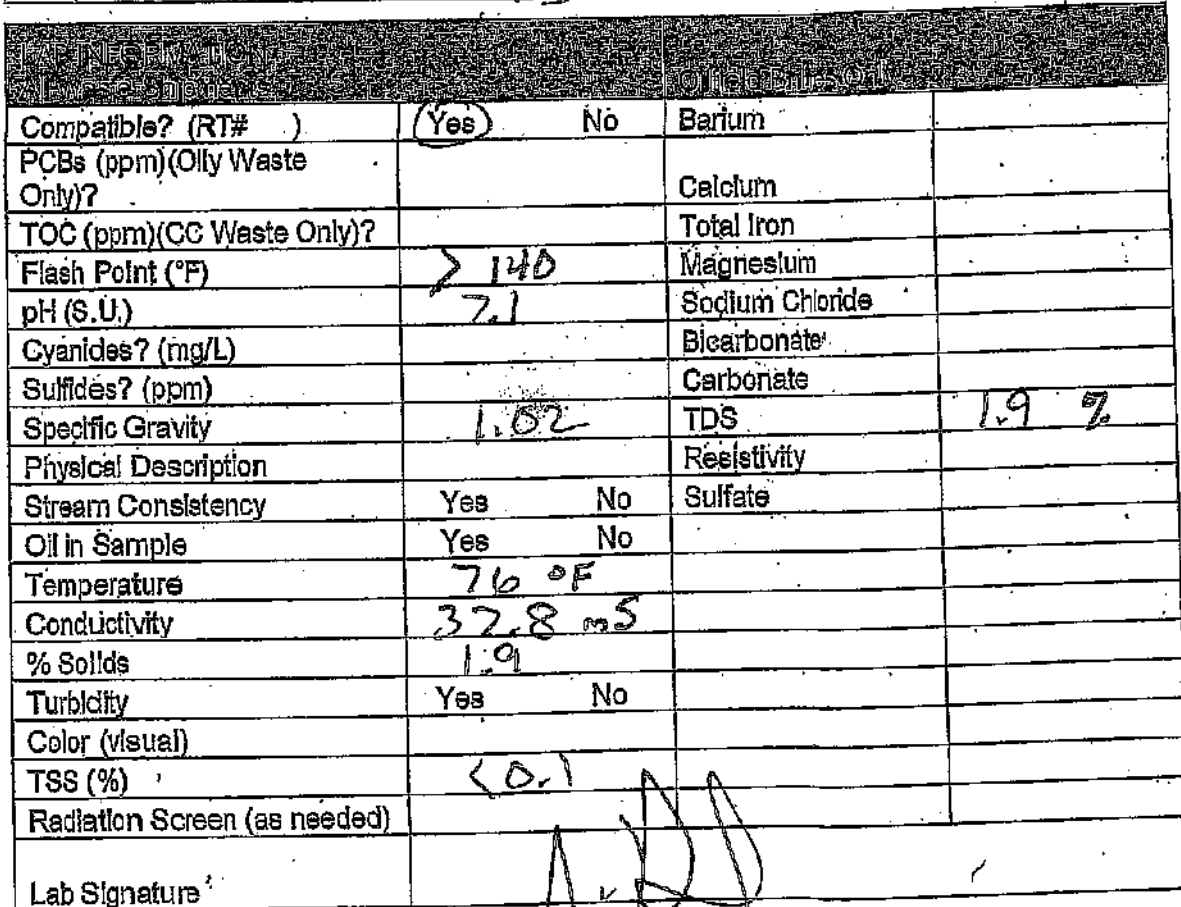 LAB INFORMATION
Compatible? (RT# ) Yes No Barium
PCBs (ppm)(Oily Waste
Only)? Calcium
TOC (ppm)(CC Waste Only)? Total Iron
Flash Point (°F) > 140 Magnesium
pH (S.U.) 7.1 Sodium Chloride
Cyanides? (mg/L) Bicarbonate
Sulfides? (ppm) Carbonate
Specific Gravity 1.02 TDS 1.9 %
Physical Description Resistivity
Stream Consistency Yes No Sulfate
Oil in Sample Yes No
Temperature 76 °F
Conductivity 32.8 mS
% Solids 1.9
Turbidity Yes No
Color (visual)
TSS (%) <0.1
Radiation Screen (as needed)
Lab Signature